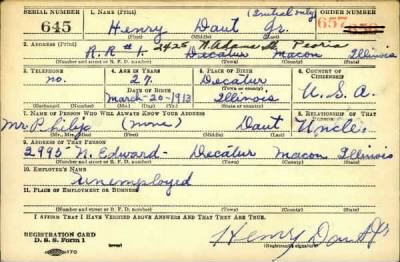 SERIAL NUMBER 1. NAME (Print) (Initial only) ORDER NUMBER
645 Henry Daut Jr. 657
(First) (Middle) (Last)
2. ADDRESS (Print) 2425 N. Adams St. Peoria
R.R #1. Decatur Macon Illinois
(Number and street or R. F. D. number) (Town) (County) (State)
3. TELEPHONE 4. AGE IN YEARS 5. PLACE OF BIRTH 6. COUNTRY OF CITIZENSHIP
no. 27. Decatur
DATE OF BIRTH (Town or county)
March-20-1913 Illinois U.S.A.
(Mo.) (Day) (Yr.) (State or country)
7. NAME OF PERSON WHO WILL ALWAYS KNOW YOUR ADDRESS 8. RELATIONSHIP OF THAT PERSON
Mr. Philip (none) Daut Uncle
(Mr., Mrs., Miss) (First) (Middle) (Last)
9. ADDRESS OF THAT PERSON
2995 N. Edward - Decatur Macon Illinois
(Number and street or R. F. D. number) (Town) (County) (State)
10. EMPLOYER'S NAME
unemployed
11. PLACE OF EMPLOYMENT OR BUSINESS
(Number and street or R. F. D. number) (Town) (County) (State)
I AFFIRM THAT I HAVE VERIFIED ABOVE ANSWERS AND THAT THEY ARE TRUE.
REGISTRATION CARD
D. S. S. Form 1 Henry Daut Jr
(Registrant's signature)